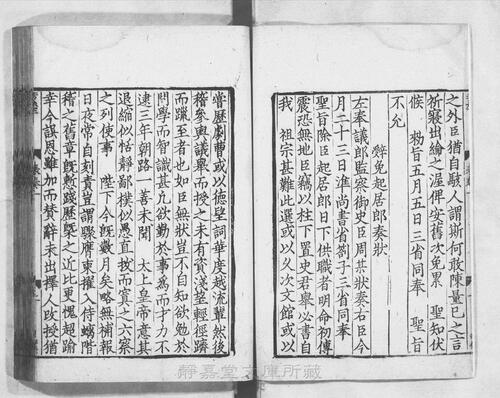 之外臣猶自駭人謂斯何敢陳量已之言
祈寢出綸之渥俾安舊次免累 聖知伏
候 勑旨五月五日三省同奉 聖旨
不允
辭免起居郎奏狀
左奉議郎監察御史臣周狀奏右臣今
月二十三日準尚書省劄子三省同奉
聖旨除臣起居郎日下供職者明命初傳
震恐無地臣竊以柱下置史君舉必書自
我 祖宗甚難此選或以久次文館或以
嘗歷劇曹或以德望詞華度越流輩然後
稽參輿議舉而授之未有資淺望輕徑躋
而躐至者也如臣無狀豈不自知欲勉於
問學而智識甚凡欲勤於事為而才力不
逮三年朝路一善未聞 太上皇帝意其
退縮似恬靜鄙樸似愚直拔而寘之六察
之列使事 陛下今既數月矣略無補報
日夜常自刻責豈謂驟膺柬擢入侍螭階
稽之舊章既愆踐歷槩之近比更愧超踰
幸今誤恩雖加而贊辭未出擇人改授猶
静嘉堂文庫所蔵